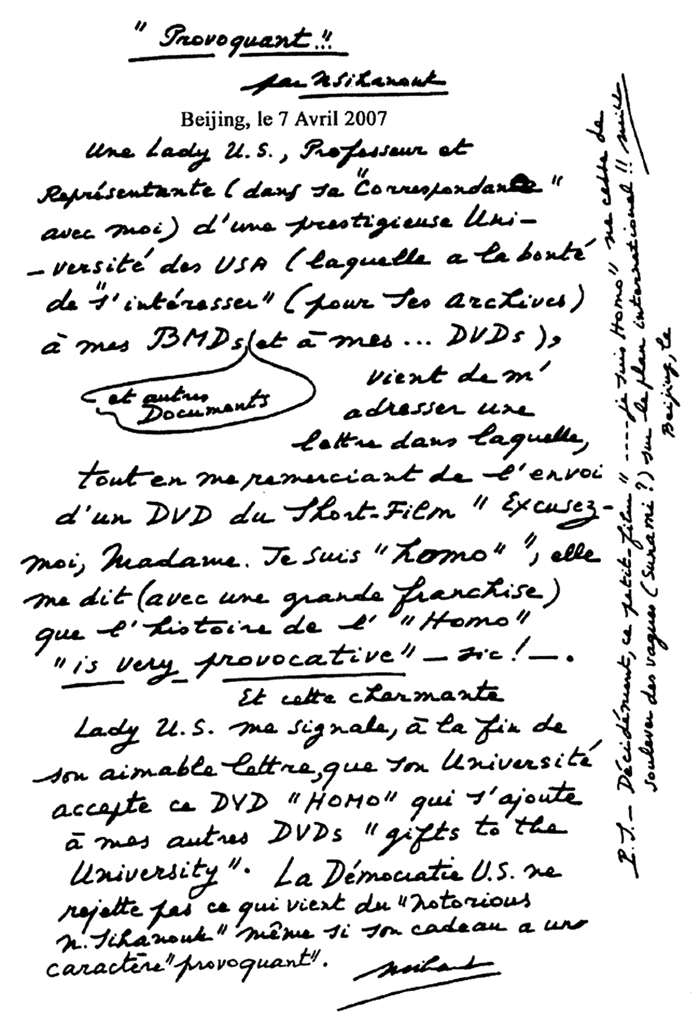 "Provoquant"!!
par N Sihanouk
Beijing, le 7 Avril 2007
Une Lady U.S., Professeur et
Représentante (dans sa "Correspondance"
avec moi) d'une prestigieuse Uni-
-versité des USA (laquelle a la bonté
de "s'intéresser" (pour ses Archives)
à mes BMDs (et à mes... DVDs),
et autres
Documents
vient de m'
adresser une
lettre dans laquelle,
tout en me remerciant de l'envoi
d'un DVD du Short-Film "Excusez-
moi, Madame. Je suis "homo"", elle
me dit (avec une grande franchise)
que l'histoire de l'"Homo"
"is very provocative" — sic! —.
Et cette charmante
Lady U.S. me signale, à la fin de
son aimable lettre, que son Université
accepte ce DVD "HOMO" qui s'ajoute
à mes autres DVDs "gifts to the
University". La Démocratie U.S. ne
rejette pas ce qui vient du "notorious
N. Sihanouk" même si son cadeau a un
caractère "provoquant".
P.S.— Décidément, ce petit-film "----je suis Homo" ne cesse de
soulever des vagues (Sunami?) sur le plan international!!
Beijing, le